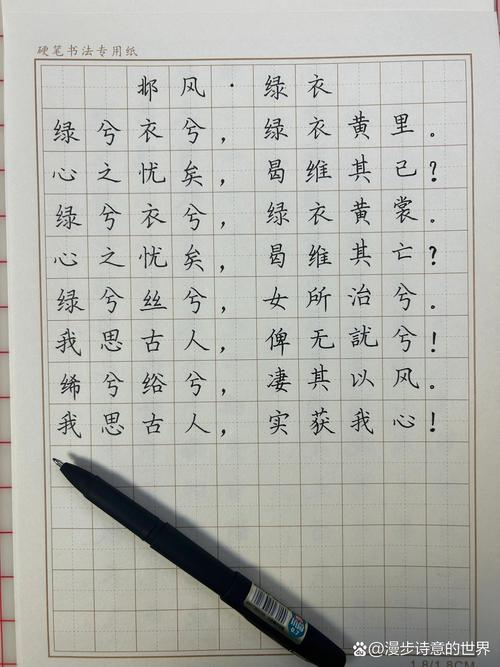 硬笔书法专用纸
邶风·绿衣
绿兮衣兮，绿衣黄里。
心之忧矣，曷维其已？
绿兮衣兮，绿衣黄裳。
心之忧矣，曷维其亡？
绿兮丝兮，女所治兮。
我思古人，俾无訧兮！
絺兮绤兮，凄其以风。
我思古人，实获我心！
0.7
1.8/1.8CM
@漫步诗意的世界